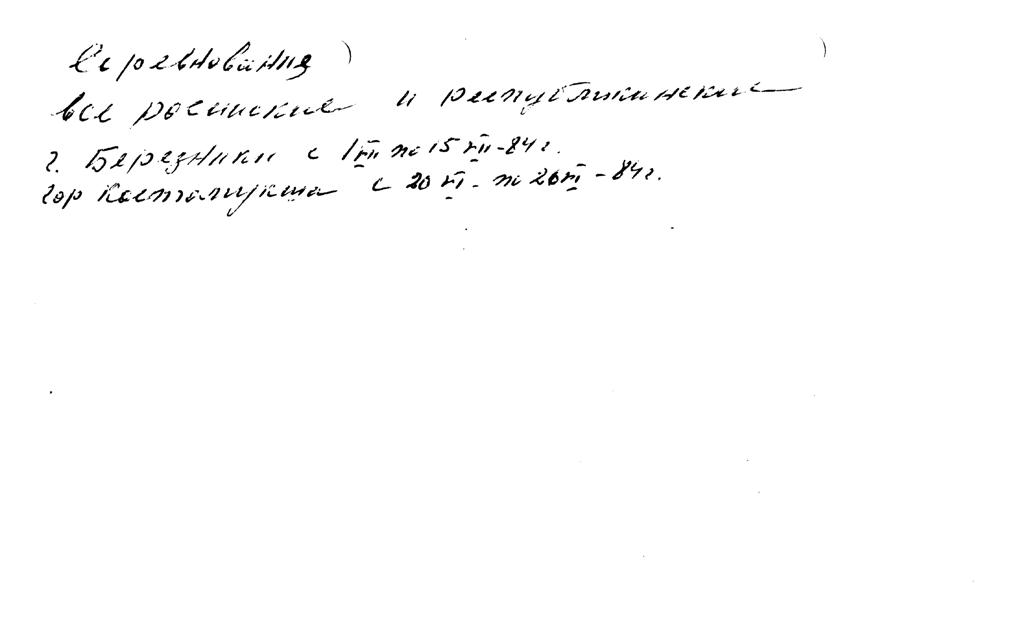 Соревнования
все росийские и республикинские
г. Березники с 1 VII по 15 VII - 84 г.
гор Костомукша с 20 VI - по 26 VI - 84 г.